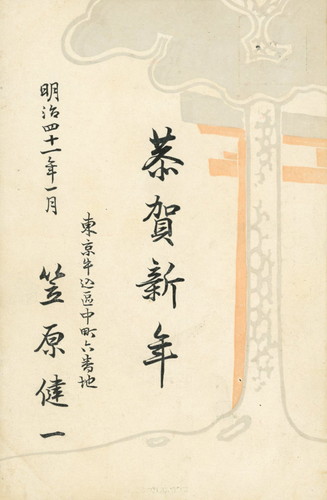 恭賀新年
東京牛込區中町六番地
明治四十一年一月
笠原健一